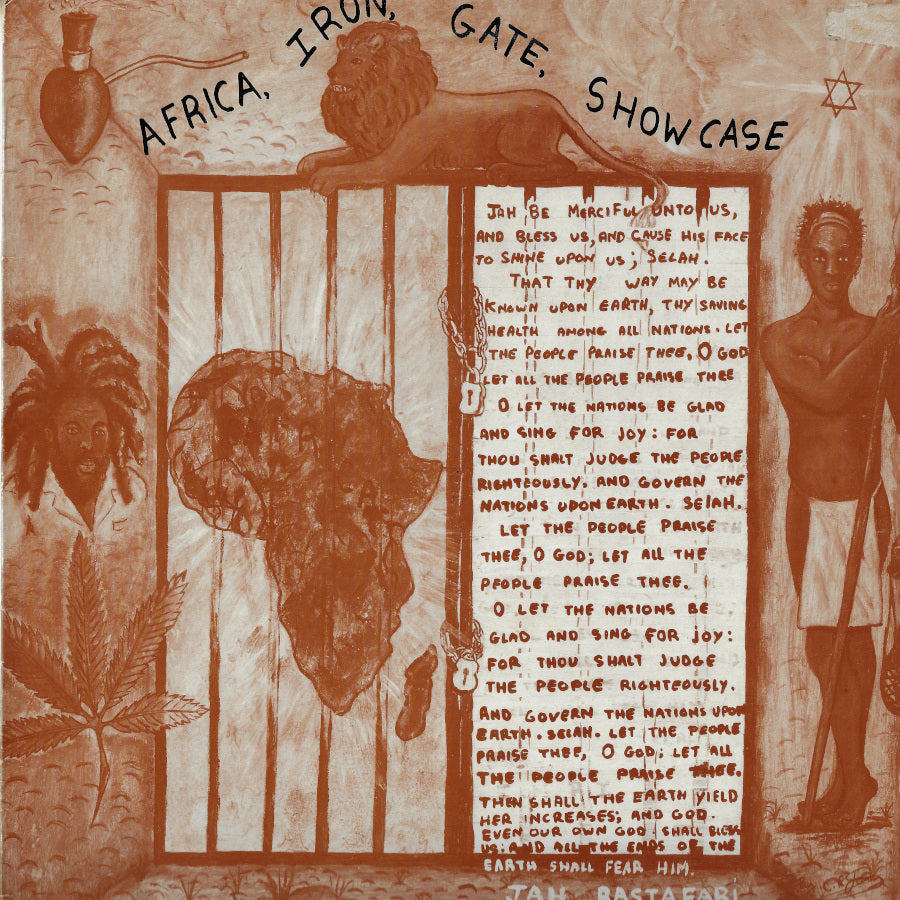 AFRICA, IRON, GATE, SHOWCASE
JAH BE MERCIFUL UNTO US,
AND BLESS US, AND CAUSE HIS FACE
TO SHINE UPON US; SELAH.
THAT THY WAY MAY BE
KNOWN UPON EARTH, THY SAVING
HEALTH AMONG ALL NATIONS. LET
THE PEOPLE PRAISE THEE, O GOD
LET ALL THE PEOPLE PRAISE THEE
O LET THE NATIONS BE GLAD
AND SING FOR JOY: FOR
THOU SHALT JUDGE THE PEOPLE
RIGHTEOUSLY. AND GOVERN THE
NATIONS UPON EARTH. SELAH.
LET THE PEOPLE PRAISE
THEE, O GOD; LET ALL THE
PEOPLE PRAISE THEE.
O LET THE NATIONS BE
GLAD AND SING FOR JOY:
FOR THOU SHALT JUDGE
THE PEOPLE RIGHTEOUSLY.
AND GOVERN THE NATIONS UPON
EARTH. SELAH. LET THE PEOPLE
PRAISE THEE, O GOD; LET ALL
THE PEOPLE PRAISE THEE.
THEN SHALL THE EARTH YIELD
HER INCREASES; AND GOD.
EVEN OUR OWN GOD SHALL BLESS
US: AND ALL THE ENDS OF THE
EARTH SHALL FEAR HIM.
JAH RASTAFARI